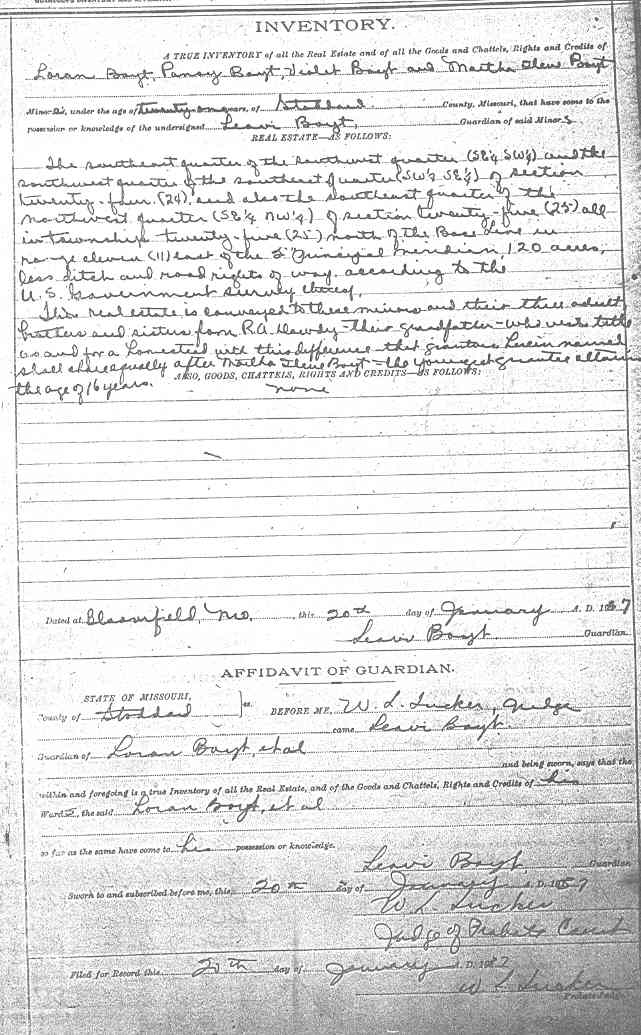 INVENTORY.
A TRUE INVENTORY of all the Real Estate and of all the Goods and Chattels, Rights and Credits of
Loran Boyt, Pansy Boyt, Violet Boyt and Martha Ilene Boyt
Minors, under the age of twenty one years, of Stoddard County, Missouri, that have come to the
possession or knowledge of the undersigned Leavi Boyt, Guardian of said Minors
REAL ESTATE—AS FOLLOWS:
The southeast quarter of the southwest quarter (SE¼ SW¼) and the
southwest quarter of the southeast quarter (SW¼ SE¼) of section
twenty-four (24), and also the southeast quarter of the
northwest quarter (SE¼ NW¼) of section twenty-five (25) all
in township twenty-five (25) north of the Base line in
range eleven (11) east of the 5" Principal Meridian 120 acres,
less ditch and road rights of way, according to the
U.S. Government survey thereof,
This real estate is conveyed to these minors and their three adult
brothers and sisters from R.A. their grandfather - who vests title
as and for a homestead with this difference - that grantees herein named
shall share equally after Martha Ilene Boyt - the youngest grantee attains
the age of 16 years.
ALSO, GOODS, CHATTELS, RIGHTS AND CREDITS—AS FOLLOWS:
none
Dated at Bloomfield, Mo. this 20th day of January A. D. 19 7
Leavi Boyt Guardian.
AFFIDAVIT OF GUARDIAN.
STATE OF MISSOURI,
County of Stoddard } ss. BEFORE ME, W. L. Tucker, Judge
came Leavi Boyt
Guardian of Loran Boyt, et al
and being sworn, says that the
within and foregoing is a true Inventory of all the Real Estate, and of the Goods and Chattels, Rights and Credits of his
Wards, the said Loran Boyt, et al
so far as the same have come to his possession or knowledge.
Leavi Boyt Guardian
Sworn to and subscribed before me, this 20th day of January A. D. 19 7
W L Tucker
Judge of Probate Court
Filed for Record this 20th day of January A. D. 19 7
W L Tucker
Probate Judge